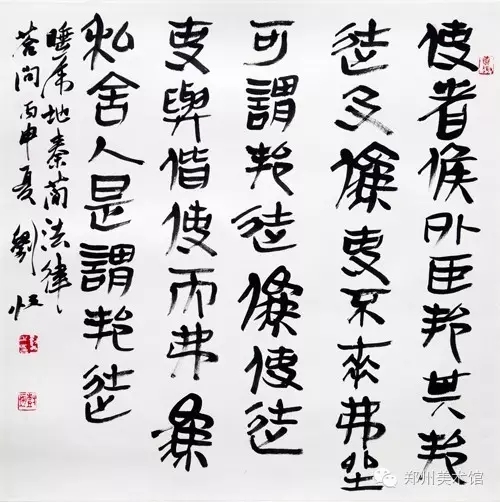 使者候外臣邦其邦
徒及偽吏不來弗坐
可謂邦徒偽使徒
吏與偕使而弗為
私舍人是謂邦徒
睡虎地秦簡法律
答問丙申夏劉恒
郑州美术馆